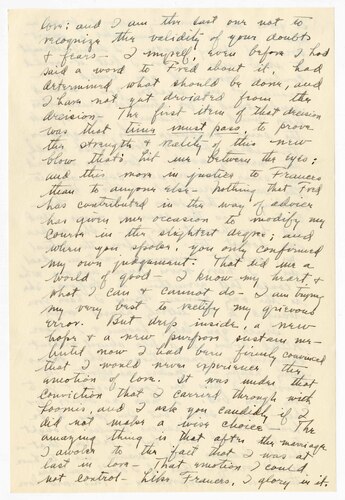 love; and I am the last one not to
recognize the validity of your doubts
& fears - I myself, even before I had
said a word to Fred about it, had
determined what should be done, and
I have not yet deviated from the
decision - The first item of that decision
was that time must pass, to prove
the strength & reality of this new
blow that's hit me between the eyes;
and this more in justice to Frances
than to anyone else - nothing that Fred
has contributed in the way of advice
has given me occasion to modify my
course in the slightest degree; and
when you spoke, you only confirmed
my own judgement. That did me a
world of good - I know my heart, &
what I can & cannot do - I am trying
my very best to rectify my grievous
error. But deep inside, a new
hope & a new purpose sustain me -
until now I had been firmly convinced
that I would never experience the
emotion of love. It was under that
conviction that I carried through with
Loomis, and I ask you candidly if I
did not make a wise choice - The
amazing thing is that after the marriage
I awoke to the fact that I was at
last in love - That emotion I could
not control - Like Frances, I glory in it.